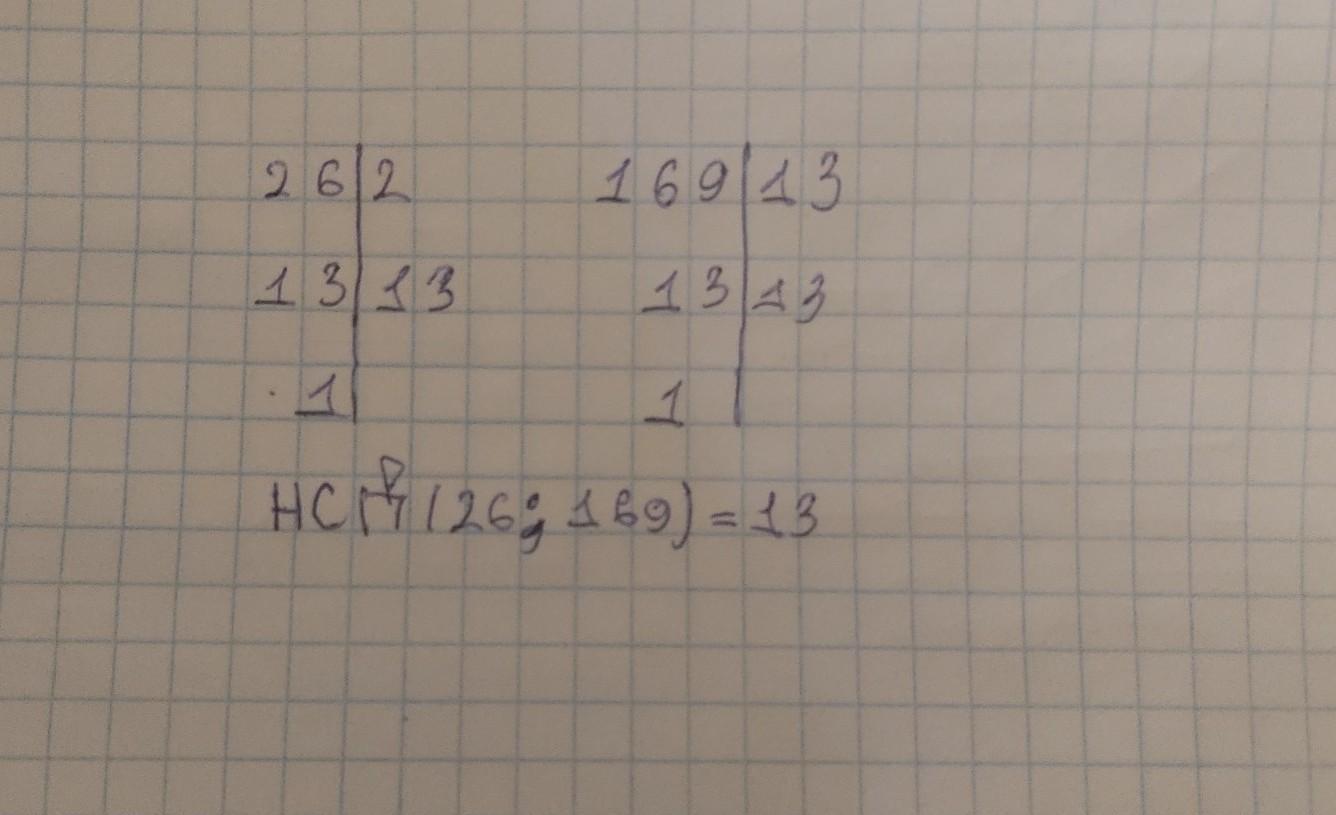 26|2 169|13
13|13 13|13
1| 1|
НСП (26; 169) = 13